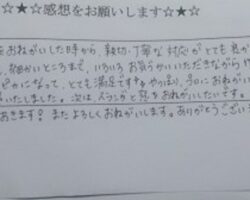 ☆★☆感想をお願いします☆★☆
おねがいした時から、親切・丁寧な対応がとても良か
細かいところまで、いろいろお気づかいいただきながらや
になって、とても満足です。やっぱり、プロにおねがい
いたしました。次は、ベランダと窓をおねがいしたいです。
おきます! またよろしくおねがいします。ありがとうござい